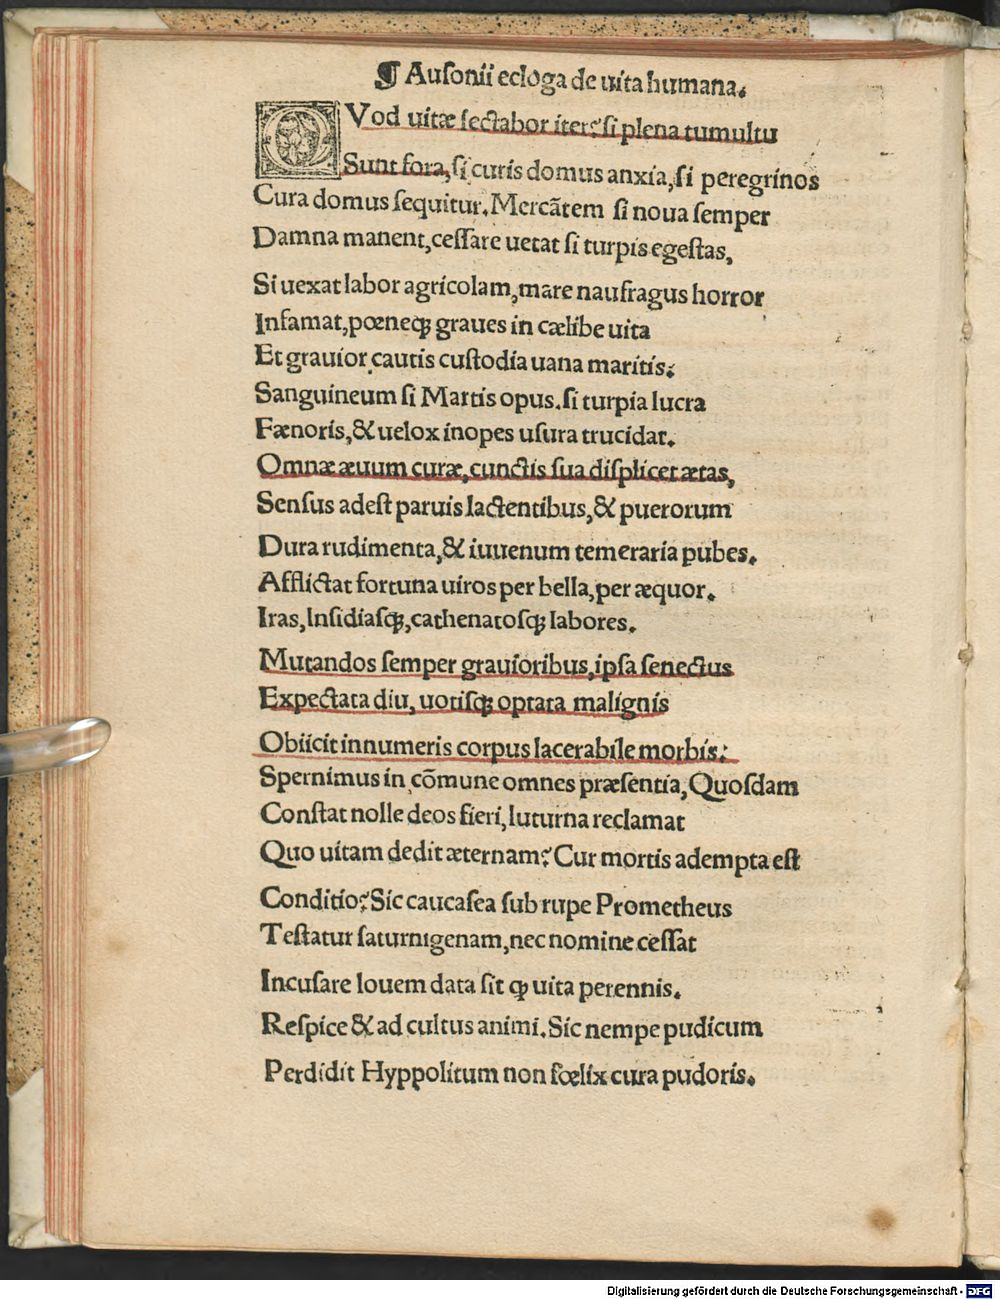 ¶ Auſonii ecloga de uita humana.
QVod uitæ ſectabor iter? ſi plena tumultu
Sunt fora, ſi curis domus anxia, ſi peregrinos
Cura domus ſequitur. Mercãtem ſi noua ſemper
Damna manent, ceſſare uetat ſi turpis egeſtas,
Si uexat labor agricolam, mare naufragus horror
Infamat, pœneqꝫ graues in cælibe uita
Et grauior cautis cuſtodia uana maritis:
Sanguineum ſi Martis opus. ſi turpia lucra
Fænoris, & uelox inopes uſura trucidat.
Omnæ æuum curæ, cunctis ſua diſplicet ætas,
Senſus adeſt paruis lactentibus, & puerorum
Dura rudimenta, & iuuenum temeraria pubes.
Afflictat fortuna uiros per bella, per æquor.
Iras, Inſidiaſqꝫ, cathenatoſqꝫ labores.
Mutandos ſemper grauioribus, ipſa ſenectus
Expectata diu, uotiſqꝫ optata malignis
Obiicit innumeris corpus lacerabile morbis:
Spernimus in cõmune omnes præſentia, Quoſdam
Conſtat nolle deos fieri, Iuturna reclamat
Quo uitam dedit æternam? Cur mortis adempta eſt
Conditio? Sic caucaſea ſub rupe Prometheus
Teſtatur ſaturnigenam, nec nomine ceſſat
Incuſare Iouem data ſit ꝙ uita perennis.
Reſpice & ad cultus animi. Sic nempe pudicum
Perdidit Hyppolitum non fœlix cura pudoris.
Digitalisierung gefördert durch die Deutsche Forschungsgemeinschaft - DFG